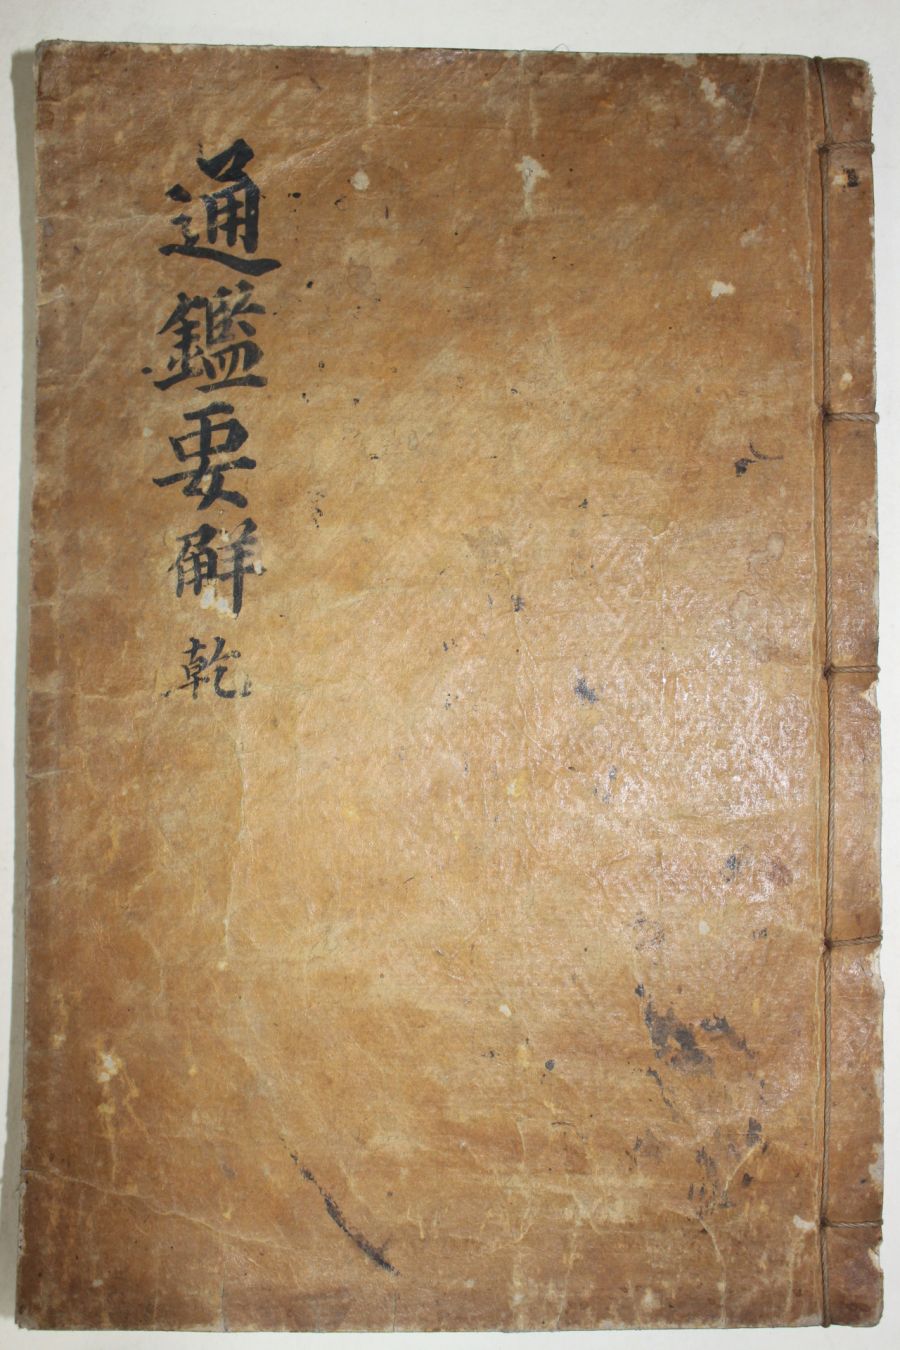 通鑑要觧乾